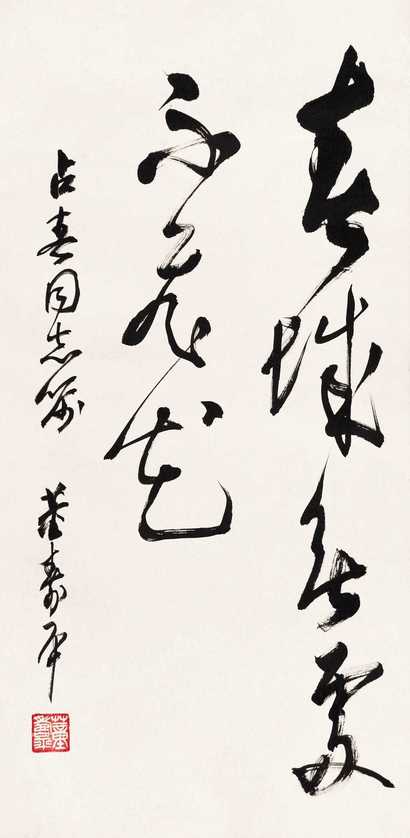 春城無處
不飛花
占春同志属 董壽平